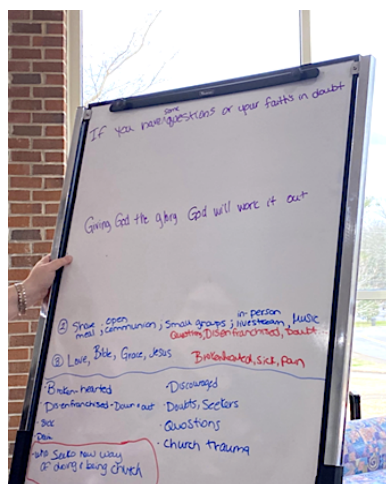 If you have some questions or your faith's in doubt
Giving God the glory God will work it out
① Share meal, open communion, small groups, in-person livestream, Music
Questions, Disenfranchised, Doubt..
② Love, Bible, Grace, Jesus Brokenhearted, sick, pain
• Broken-hearted
Disenfranchised - Down & out
• sick
Pain
• who seeks new way
of doing & being church
• Discouraged
• Doubts, Seekers
• Questions
• Church trauma